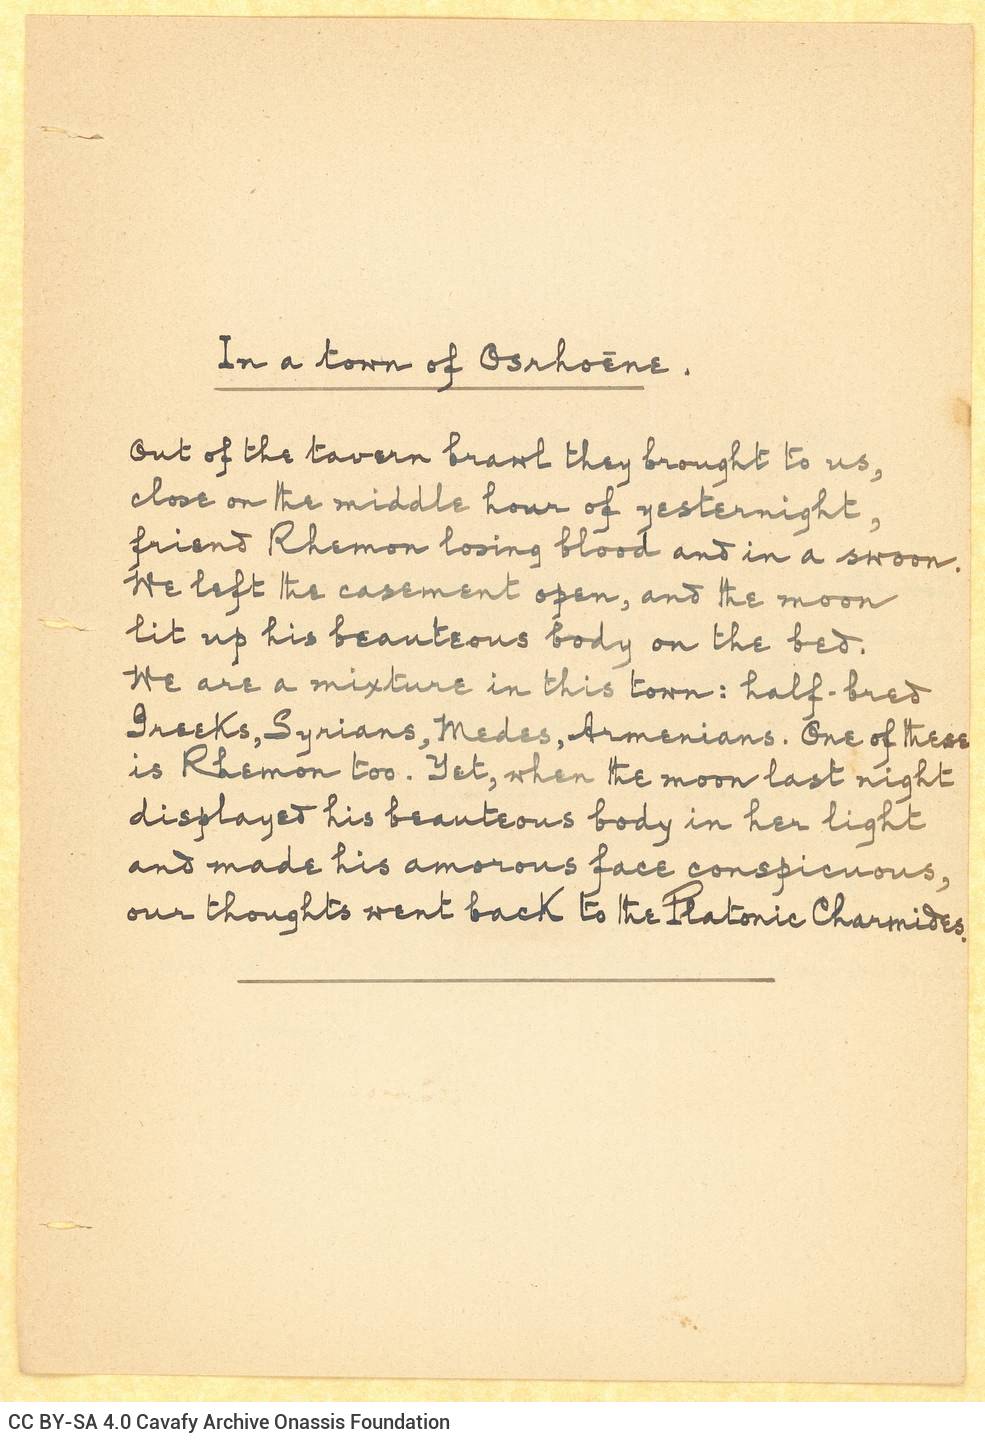 In a town of Osrhoēne.
Out of the tavern brawl they brought to us,
close on the middle hour of yesternight,
friend Rhemon losing blood and in a swoon.
We left the casement open, and the moon
lit up his beauteous body on the bed.
We are a mixture in this town: half-bred
Greeks, Syrians, Medes, Armenians. One of these
is Rhemon too. Yet, when the moon last night
displayed his beauteous body in her light
and made his amorous face conspicuous,
our thoughts went back to the Platonic Charmides.
CC BY-SA 4.0 Cavafy Archive Onassis Foundation